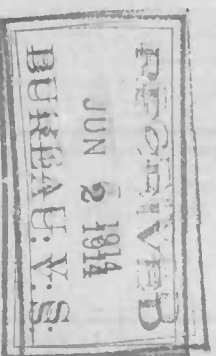 RECEIVED
JUN 2 1914
BUREAU.V.S.